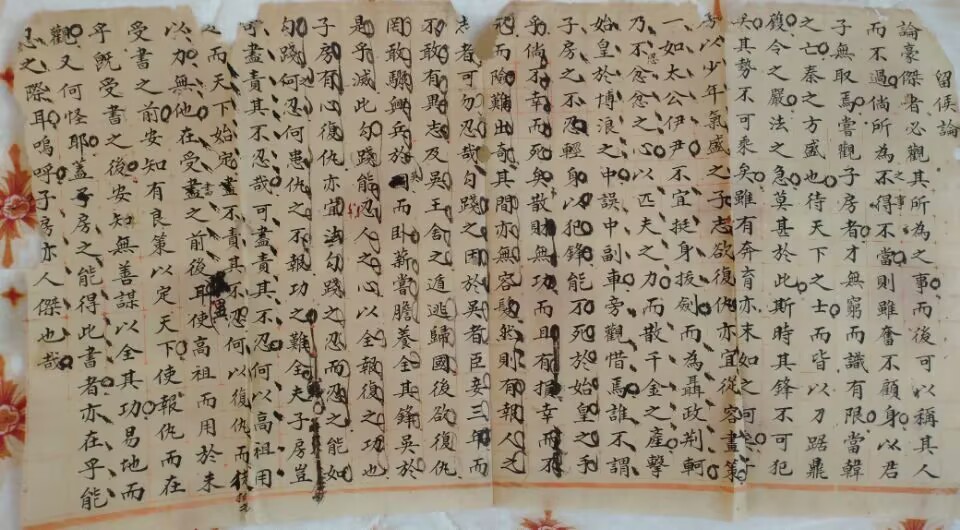 留侯論
論豪傑者必觀其所為之事而後可以稱其人
而不過倘所為之事不得不當則雖奮不顧身以君
子無取焉嘗觀子房者才無窮而識有限當韓
之亡秦之方盛也待天下之士而皆以刀踞鼎
鑊令之嚴法之急莫甚於此斯時其鋒不可犯
矣其勢不可乘矣雖有奔育亦末如之何矣子
房以少年氣盛之子志欲復仇亦宜從容畫策
一如太公伊尹不宜挺身拔劍而為聶政荆軻
乃不忍忿忿之心以匹夫之力而散千金之產擊
始皇於博浪之中誤中副車旁觀惜焉誰不謂
子房之不忍輕身以犯鋒能不死於始皇之手
乎倘不幸而死矣散財無功而且有損幸而不
死而除難出奇其間亦無容髮然則有報人之
志者可勿忍哉勾踐之困於吳者臣妾三年而
不敢有異志及吳王舍之遁逃歸國後欲復仇
罔敢驟興兵於吳而卧薪嘗膽養全其鋒吳於
是乎滅此勾踐能忍人之心以全報復之功也
子房有心復仇亦宜法勾踐之忍而忍之能如
勾踐何忍何患仇之不報功之難全夫子房豈
可盡責其不忍哉可盡責其不忍何以高祖用
之而天下始定盡不責其不忍何以復仇而
以力無他在受書之前後耳使高祖而用於未
受書之前安知有良策以定天下使報仇而在
乎既受書之後安知無善謀以全其功易地而
觀又何怪耶蓋子房之能得此書者亦在乎能
忍之際耳嗚呼子房亦人傑也哉